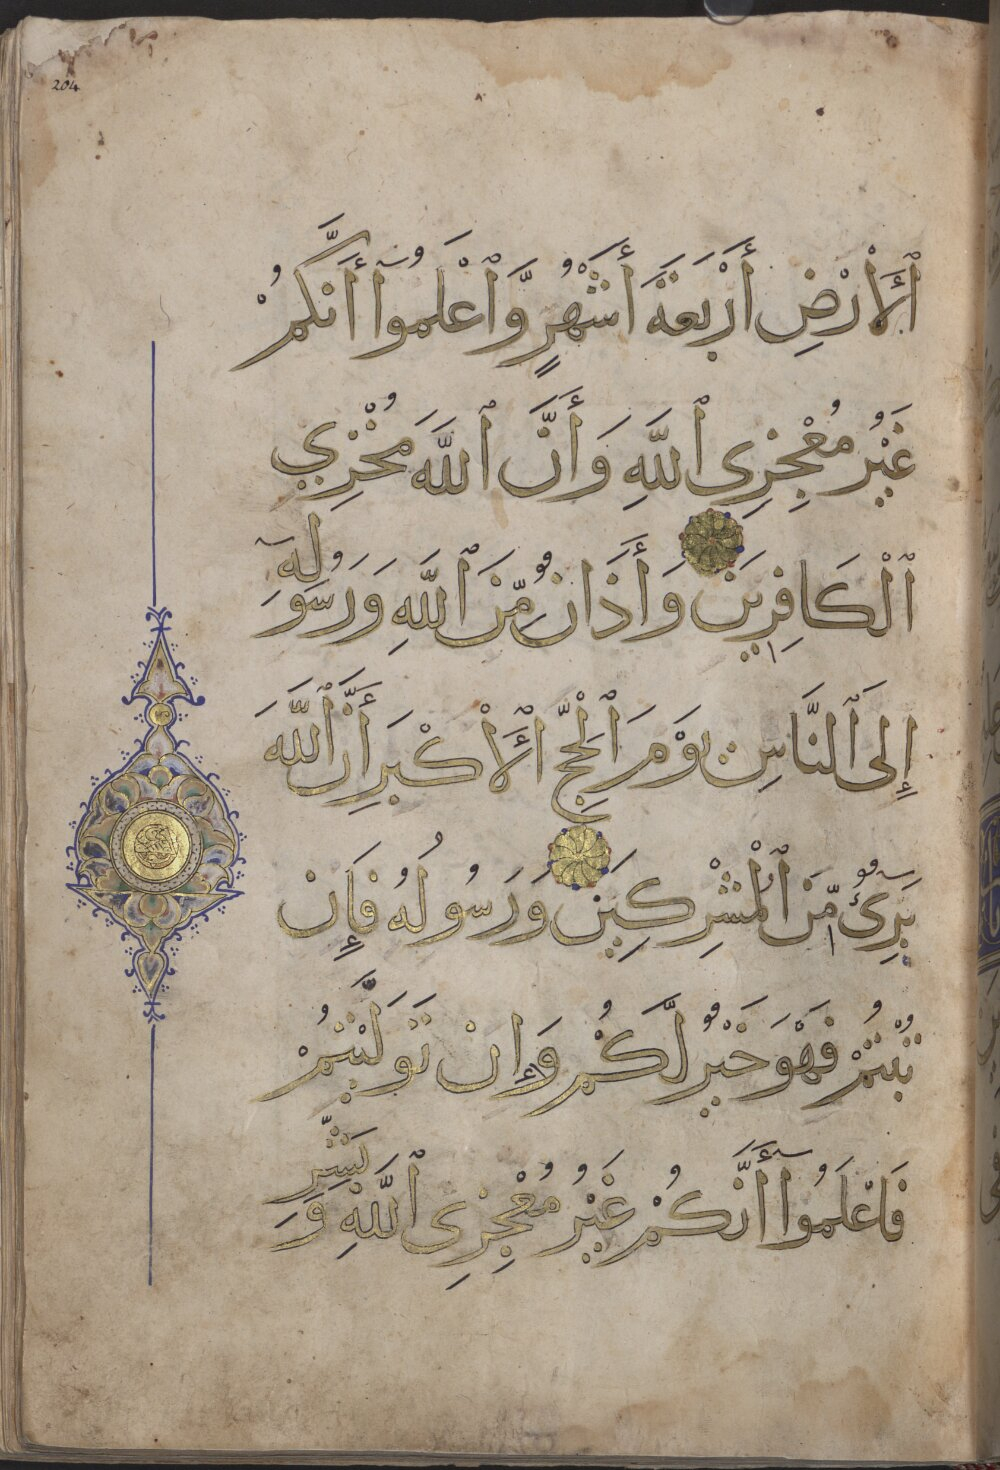 204
ٱلْأَرْضِ أَرْبَعَةَ أَشْهُرٍ وَّٱعْلَمُوٓا أَنَّكُمْ
غَيْرُ مُعْجِزِى ٱللَّهِ وَأَنَّ ٱللَّهَ مُخْزِي
ٱلْكَافِرِينَ وَأَذَانٌ مِّنَ ٱللَّهِ وَرَسُولِهِٓ
إِلَى ٱلنَّاسِ يَوْمَ ٱلْحَجِّ ٱلْأَكْبَرِ أَنَّ ٱللَّهَ
بَرِىٓءٌ مِّنَ ٱلْمُشْرِكِينَ وَرَسُولُهُ فَإِن
تُبْتُمْ فَهْوَ خَيْرٌ لَّكُمْ وَإِن تَوَلَّيْتُمْ
فَاعْلَمُوٓا أَنَّكُمْ غَيْرُ مُعْجِزِى ٱللَّهِ وَبَشِّرِ